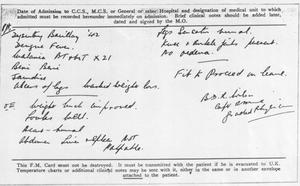 Date of Admission to C.C.S., M.C.S., or General or other Hospital and designation of medical unit to which
admitted must be recorded hereunder immediately on admission. Brief clinical notes should be added later,
dated and signed by the M.O.
Dysentery Bacillary '42
Dengue Fever.
Malaria BT & MT x 21
Beri Beri
Jaundice
Ulcers of legs
Weight much improved.
Looks well.
Heart - normal
Abdomen Liver & Spleen not
Palpable.
Legs normal.
Knee & Ankle jerks present.
No oedema.
Fit to Proceed on leave.
This F.M. Card must not be destroyed. It must be transmitted with the patient if he is evacuated to U.K.
Temperature charts or additional clinical notes may be sent with it, either in the same or in another envelope
attached to the patient.